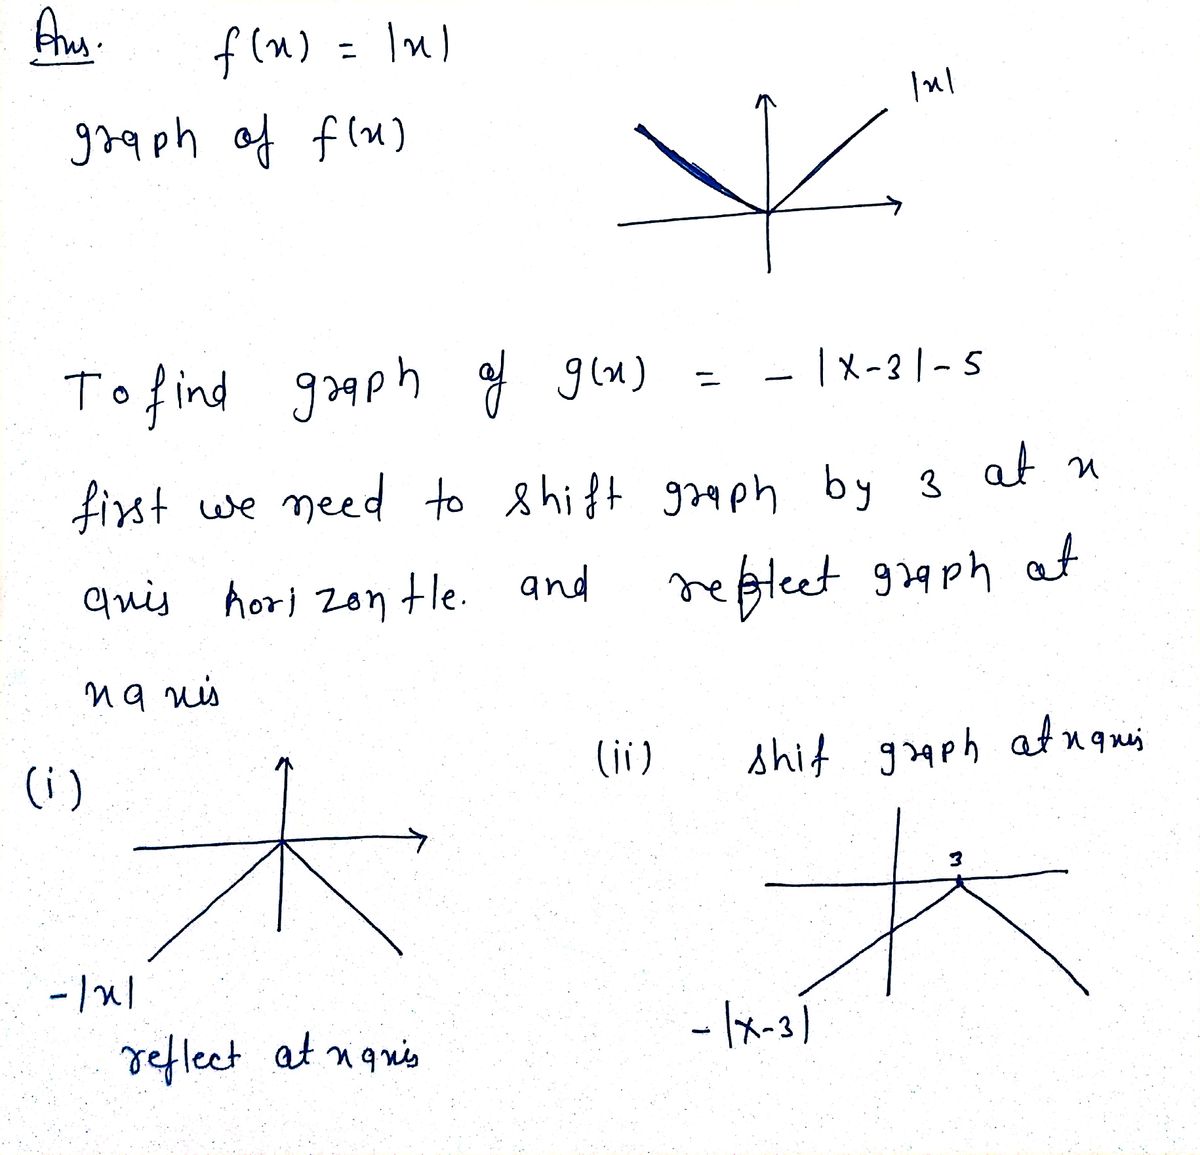 Ans. f(x) = |x|
|x|
graph of f(x)
To find graph of g(x) = - |x-3|-5
first we need to shift graph by 3 at x
axis horizontle. and reflect graph at
x axis
(i)
(ii) shif graph at x axis
3
-|x|
-|x-3|
reflect at x axis